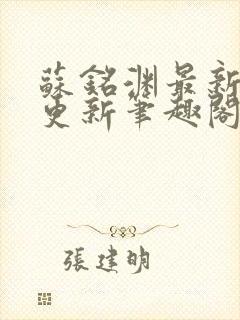 蘇銘淵最新
更新筆趣閣
張建明